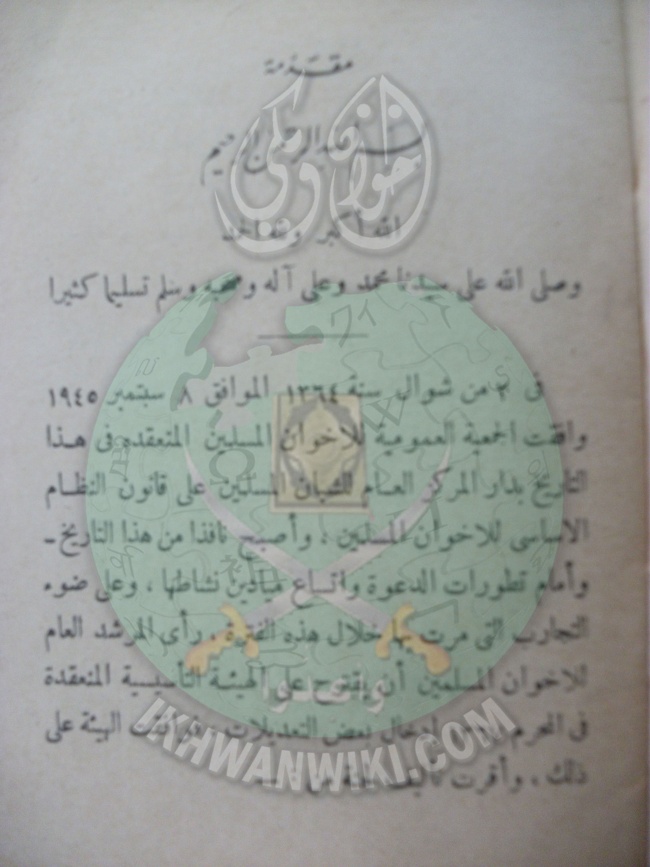 مقدمة
بسم الله الرحمن الرحيم
الله أكبر ولله الحمد
وصلى الله على سيدنا محمد وعلى آله وصحبه وسلم تسليما كثيرا
فى ٢ من شوال سنة ١٣٦٤ الموافق ٨ سبتمبر ١٩٤٥
وافقت الجمعية العمومية للاخوان المسلمين المنعقده فى هذا
التاريخ بدار المركز العام للشبان المسلمين على قانون النظام
الاساسى للاخوان المسلمين ، وأصبح نافذا من هذا التاريخ -
وأمام تطورات الدعوة واتساع ميادين نشاطها ، وعلى ضوء
التجارب التى مرت بها خلال هذه الفترة ، رأى المرشد العام
للاخوان المسلمين أن يقترح على الهيئة التأسيسية المنعقدة
فى المحرم إدخال بعض التعديلات ، فوافقت الهيئة على
ذلك ، وأقرت
إخوان ويكي
وأعدوا
IKHWANWIKI.COM